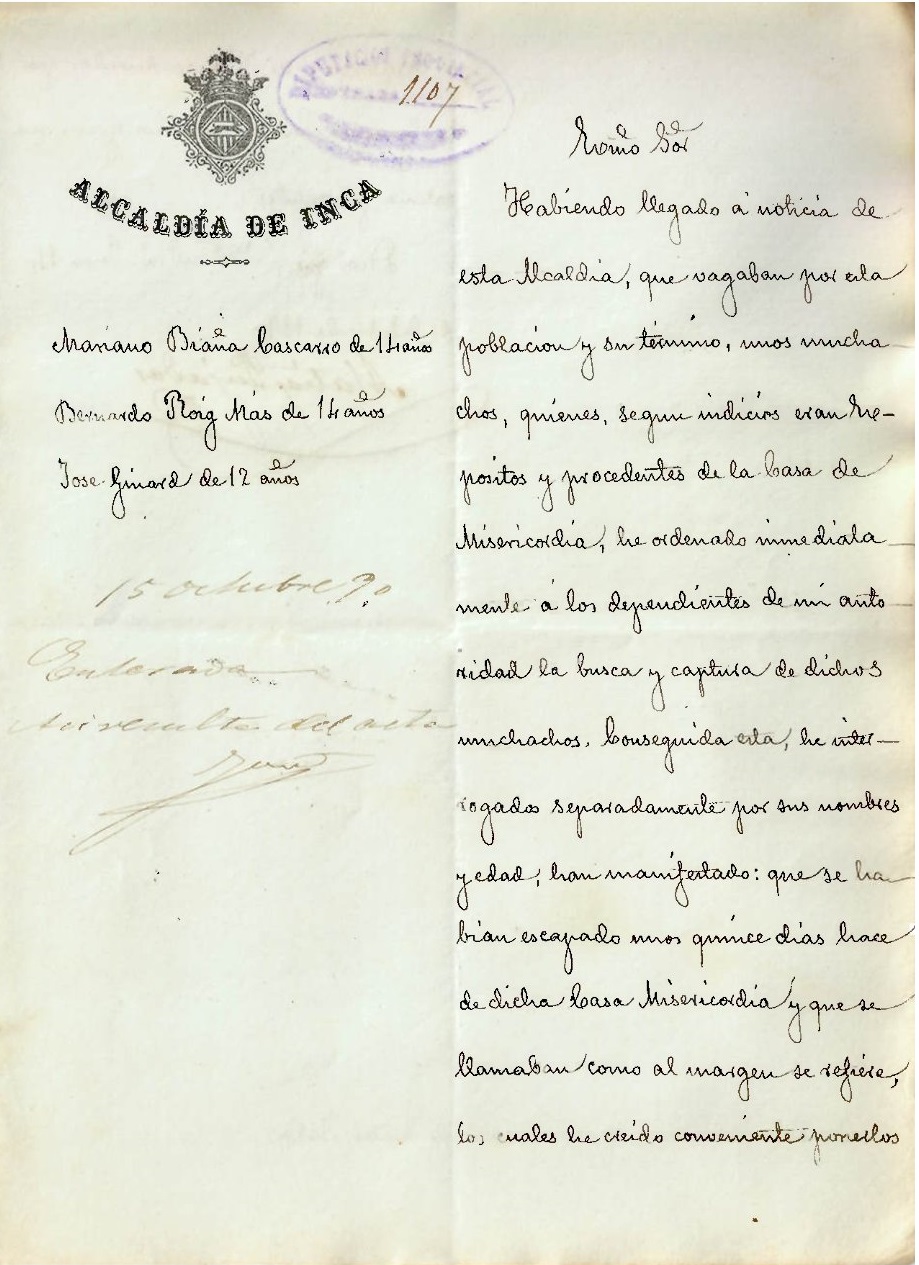 DIPUTACIÓN PROVINCIAL
1107
ALCALDÍA DE INCA
Mariano Biaña Cascarro de 14 años
Bernardo Roig Más de 14 años
Jose Ginard de 12 años
15 octubre 90
Enterada
del acta
Exmo Sor
Habiendo llegado á noticia de
esta Alcaldia, que vagaban por esta
poblacion y su término, unos mucha
chos, quienes, segun indicios eran Ex-
positos y procedentes de la Casa de
Misericordia, he ordenado inmediata
mente á los dependientes de mi auto
ridad la busca y captura de dichos
muchachos. Conseguida esta, he inter-
rogados separadamente por sus nombres
y edad, han manifestado: que se ha-
bian escapado unos quince dias hace
de dicha Casa Misericordia y que se
llamaban como al margen se refiere,
los cuales he creido conveniente ponerlos